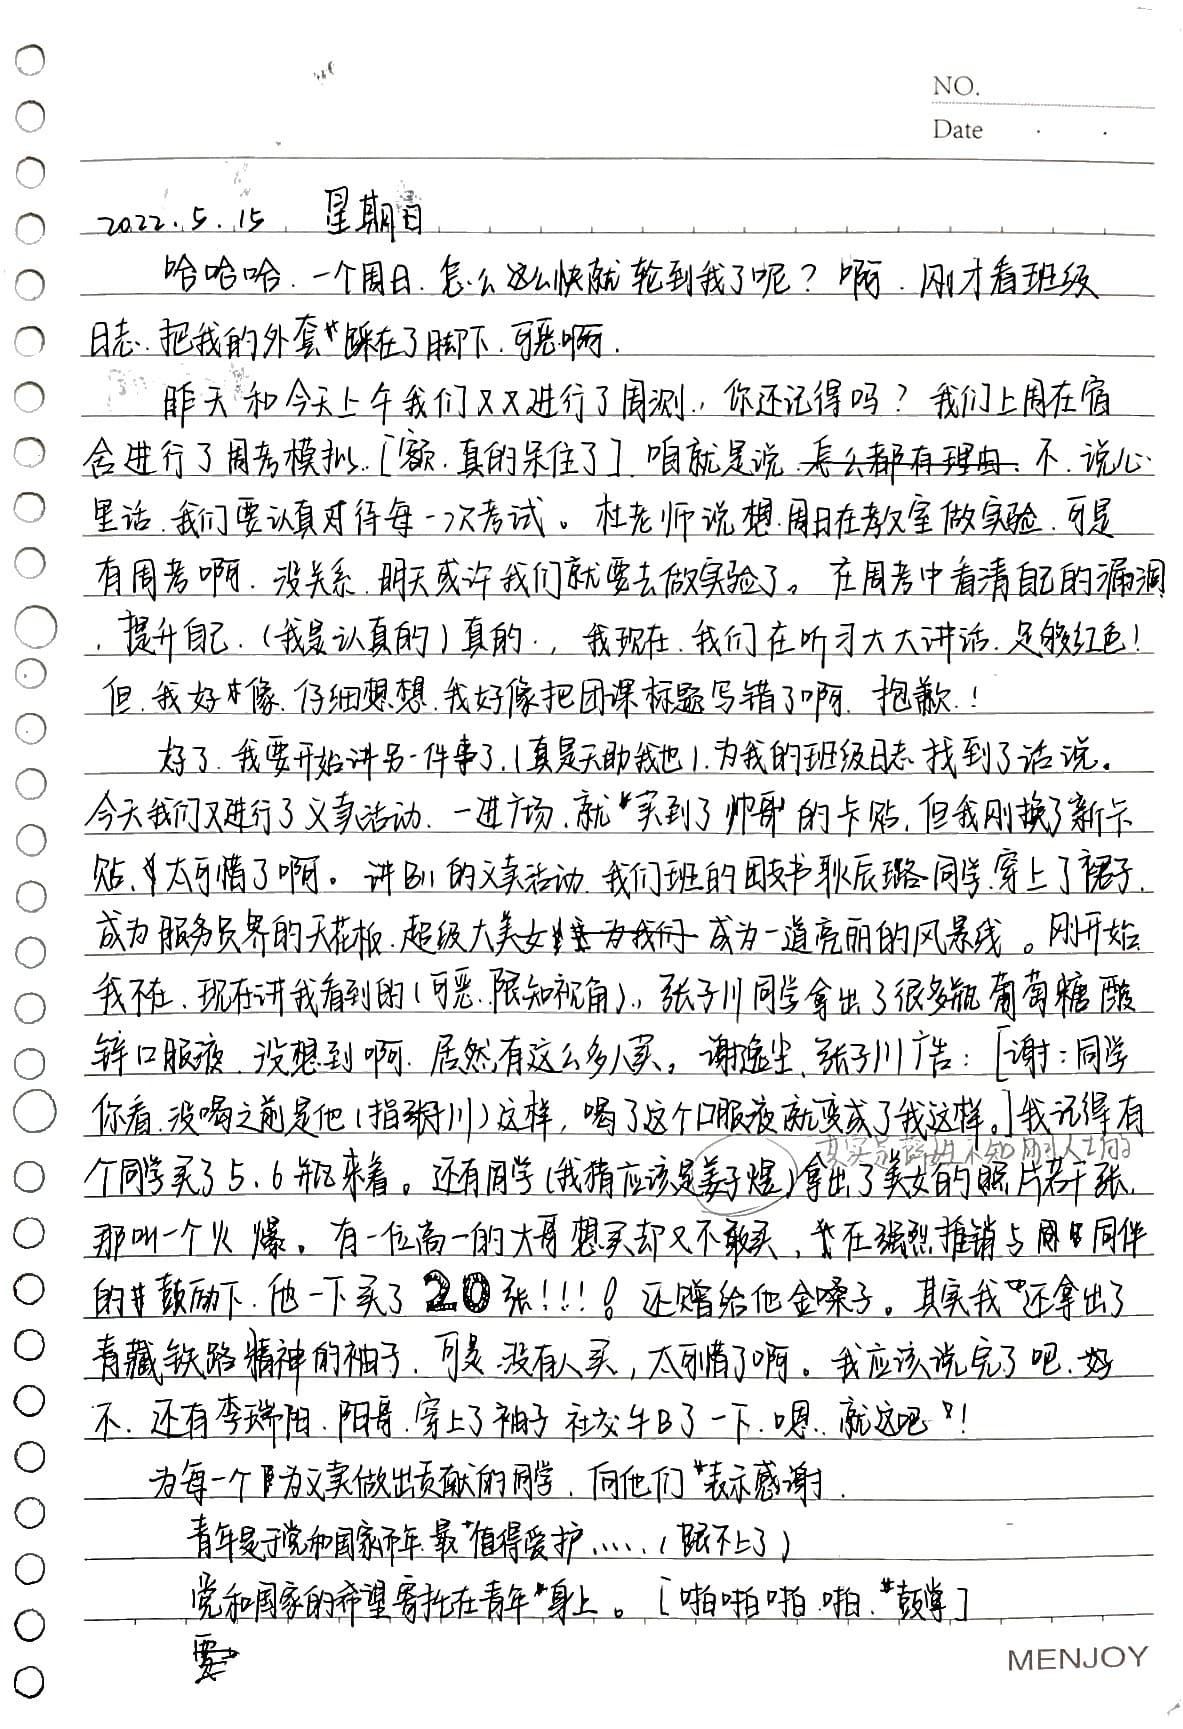 NO.
Date
2022.5.15 星期日
哈哈哈.一个周日.怎么这么快就轮到我了呢?啊.刚才看班级
日志.把我的外套踩在了脚下.可恶啊.
昨天和今天上午我们又又进行了周测.,你还记得吗?我们上周在宿
舍进行了周考模拟.[额.真的呆住了].咱就是说.怎么都有理由.不.说心
里话.我们要认真对待每一次考试。杜老师说想.周日在教室做实验.可是
有周考啊.没关系.明天或许我们就要去做实验了。在周考中看清自己的漏洞
,提升自己.(我是认真的)真的.,我现在.我们在听习大大讲话.足够红色!
但.我好像.仔细想想.我好像把团课标题写错了啊.抱歉.!
好了.我要开始讲另一件事了.(真是天助我也).为我的班级日志.找到了话说。
今天我们又进行了义卖活动.一进广场.就买到了帅哥的卡贴,但我刚换了新卡
贴,太可惜了啊。讲B11的义卖活动.我们班的团支书耿辰璐同学.穿上了裙子.
成为服务员界的天花板.超级大美女 为我们 成为一道亮丽的风景线。刚开始
我不在.现在讲我看到的(可恶.限知视角).,张子川同学拿出了很多瓶葡萄糖酸
锌口服液.没想到啊.居然有这么多人买。谢逸尘、张子川广告:[谢:同学
你看.没喝之前是他(指张子川)这样,喝了这个口服液就变成了我这样。]我记得有
其实是 不知 人士的
个同学买了5.6瓶来着。还有同学(我猜应该是姜子煜)拿出了美女的照片若干张.
那叫一个火爆。有一位高一的大哥想买却又不敢买,在强烈推销与同伴
的鼓励下.他一下买了20张!!!!还赠给他金嗓子。其实我还拿出了
青藏铁路精神的袖子.可是.没有人买,太可惜了啊。我应该说完了吧.好
不.还有李瑞阳.阳哥.穿上了袖子社交牛B了一下.嗯..就这吧!
为每一个为义卖做出贡献的同学.向他们表示感谢.
青年是于党和国家而年.最值得爱护.....(跟不上了)
党和国家的希望寄托在青年身上。[啪啪啪.啪.鼓掌]
要
MENJOY